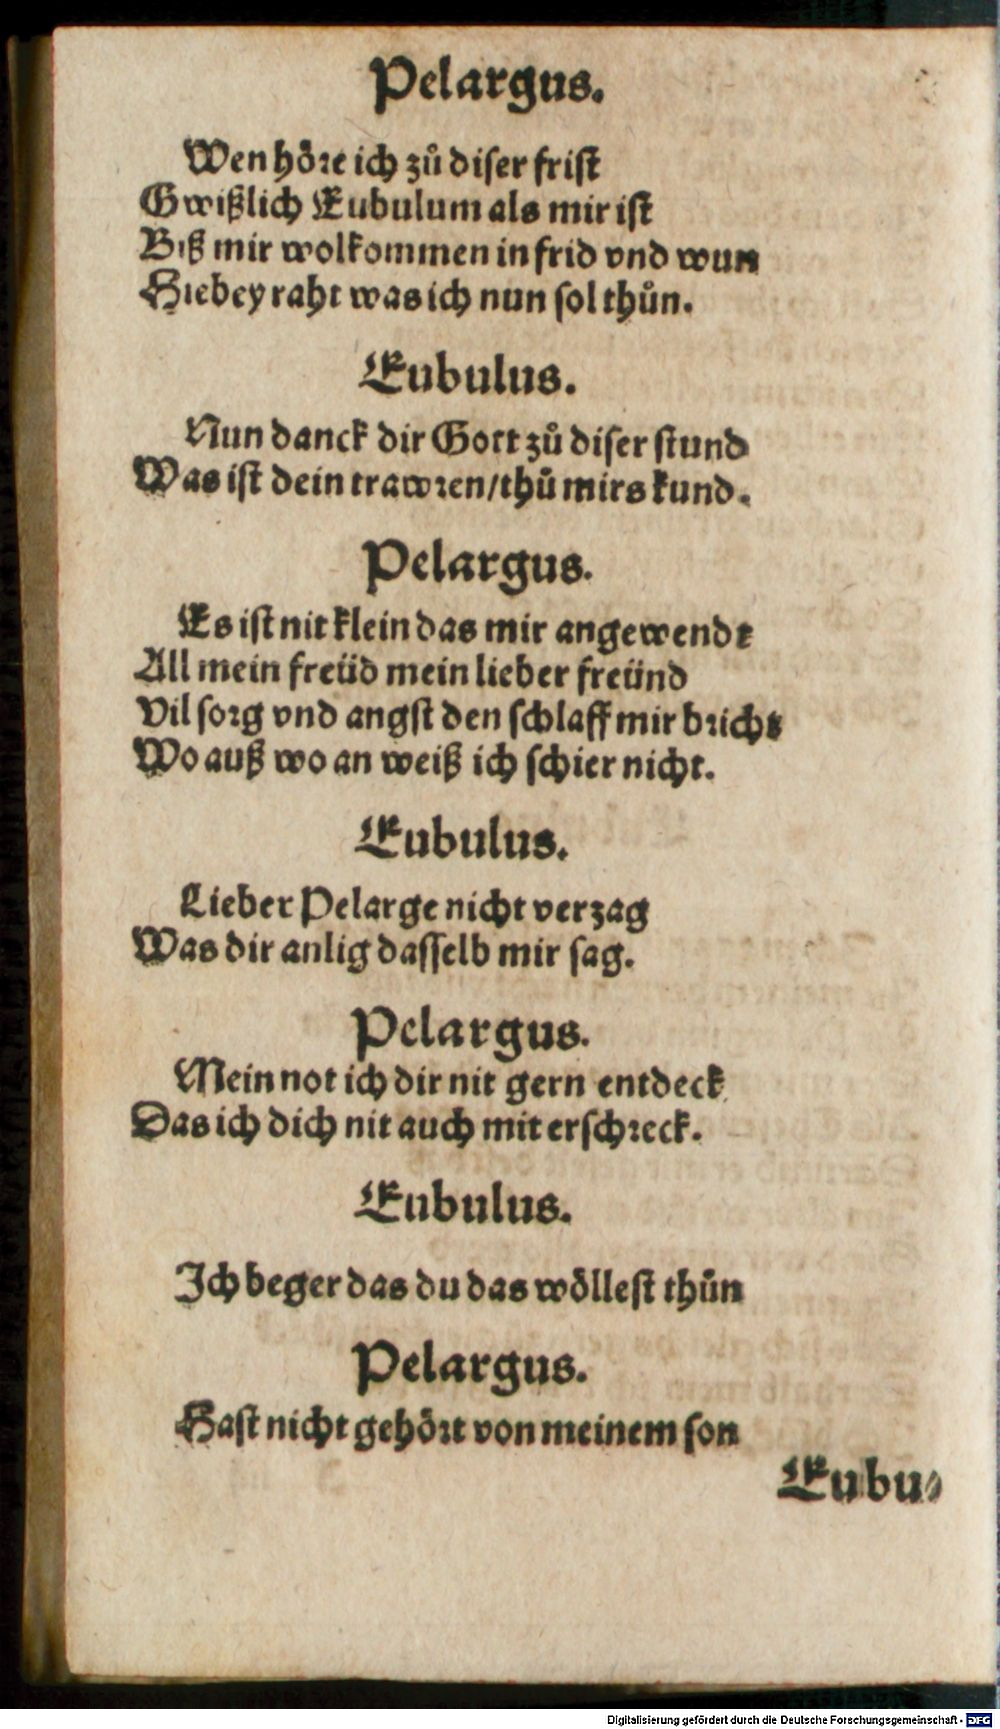 Pelargus.
Wen höre ich zů diser frist
Gwißlich Eubulum als mir ist
Biß mir wolkommen in frid vnd wun
Hiebey raht was ich nun sol thůn.
Eubulus.
Nun danck dir Gott zů diser stund
Was ist dein trawren/thů mirs kund.
Pelargus.
Es ist nit klein das mir angewendt
All mein freüd mein lieber freünd
Vil sorg vnd angst den schlaff mir bricht
Wo auß wo an weiß ich schier nicht.
Eubulus.
Lieber Pelarge nicht verzag
Was dir anlig dasselb mir sag.
Pelargus.
Mein not ich dir nit gern entdeck
Das ich dich nit auch mit erschreck.
Eubulus.
Ich beger das du das wöllest thůn
Pelargus.
Hast nicht gehört von meinem son
Eubu⸗
Digitalisierung gefördert durch die Deutsche Forschungsgemeinschaft - DFG